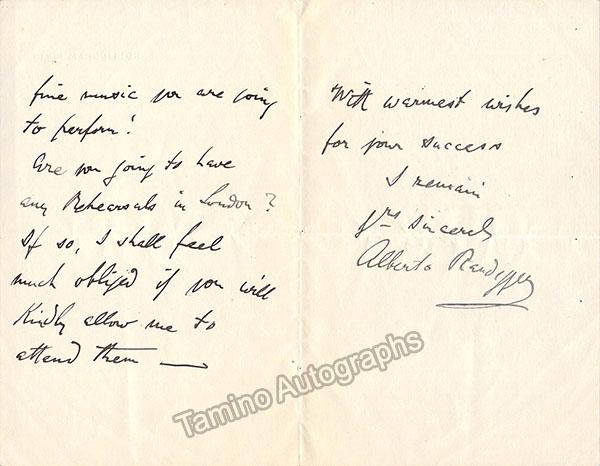 fine music you are going
to perform!
Are you going to have
any Rehearsals in London?
If so, I shall feel
much obliged if you will
Kindly allow me to
attend them —
With warmest wishes
for your success
I remain
Yrs sincerely
Alberto Randegger
Tamino Autographs